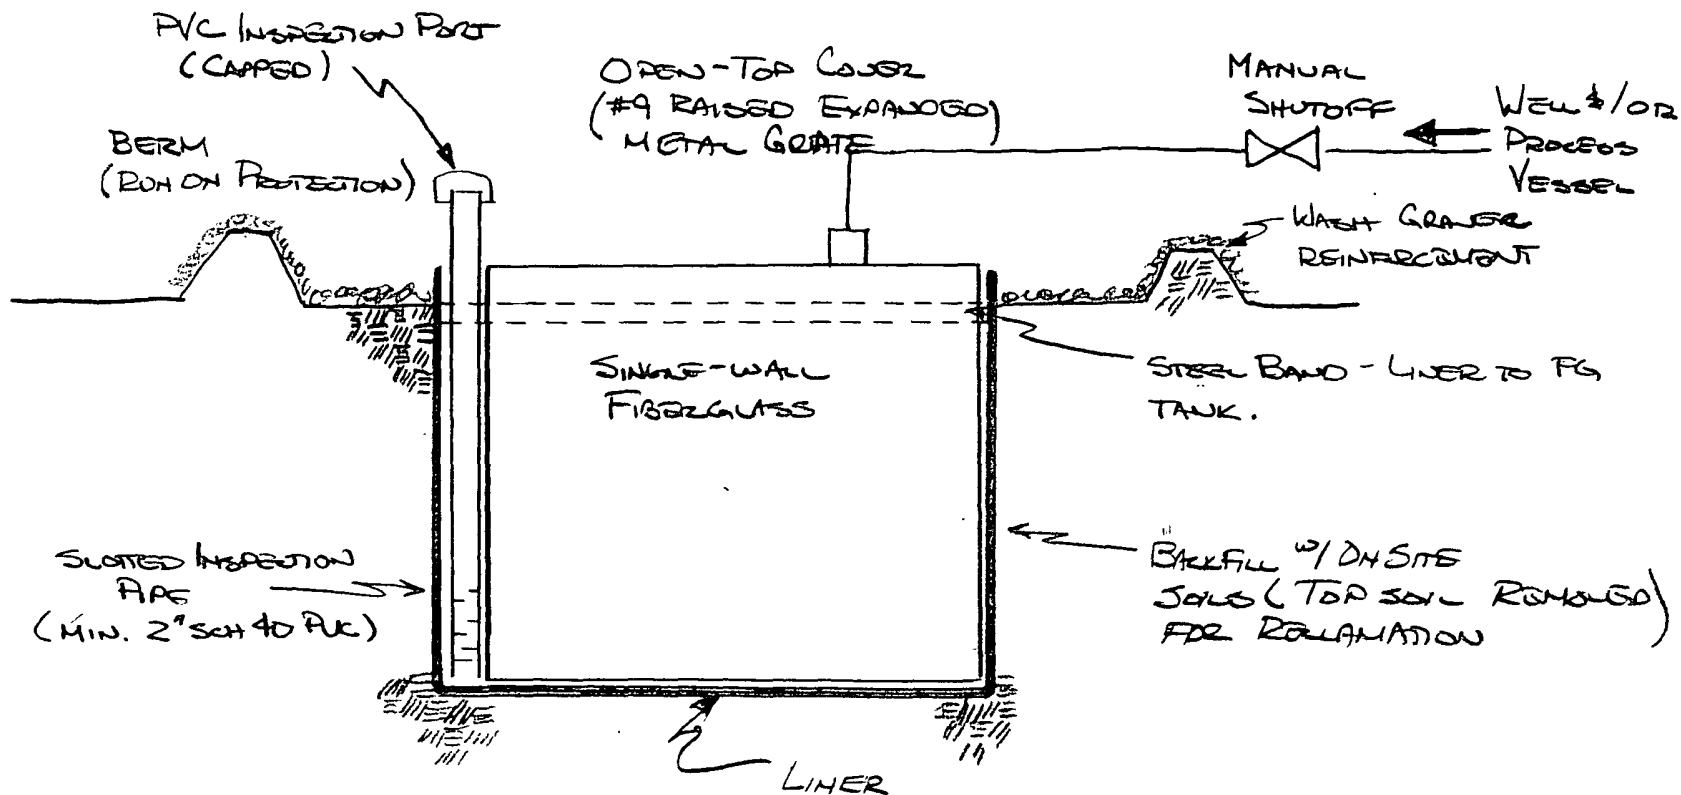 PVC INSPECTION PORT
(CAPPED)
OPEN-TOP COVER
(#9 RAISED EXPANDED)
METAL GRATE
MANUAL
SHUTOFF
WELL &/OR
PROCESS
VESSEL
BERM
(RUN ON PROTECTION)
WASH GRAVEL
REINFORCEMENT
SINGLE-WALL
FIBERGLASS
STEEL BAND - LINER TO FG
TANK.
SLOTTED INSPECTION
PIPE
(MIN. 2" SCH 40 PVC)
BACKFILL W/ ON SITE
SOILS (TOP SOIL REMOVED)
FOR RECLAMATION
LINER